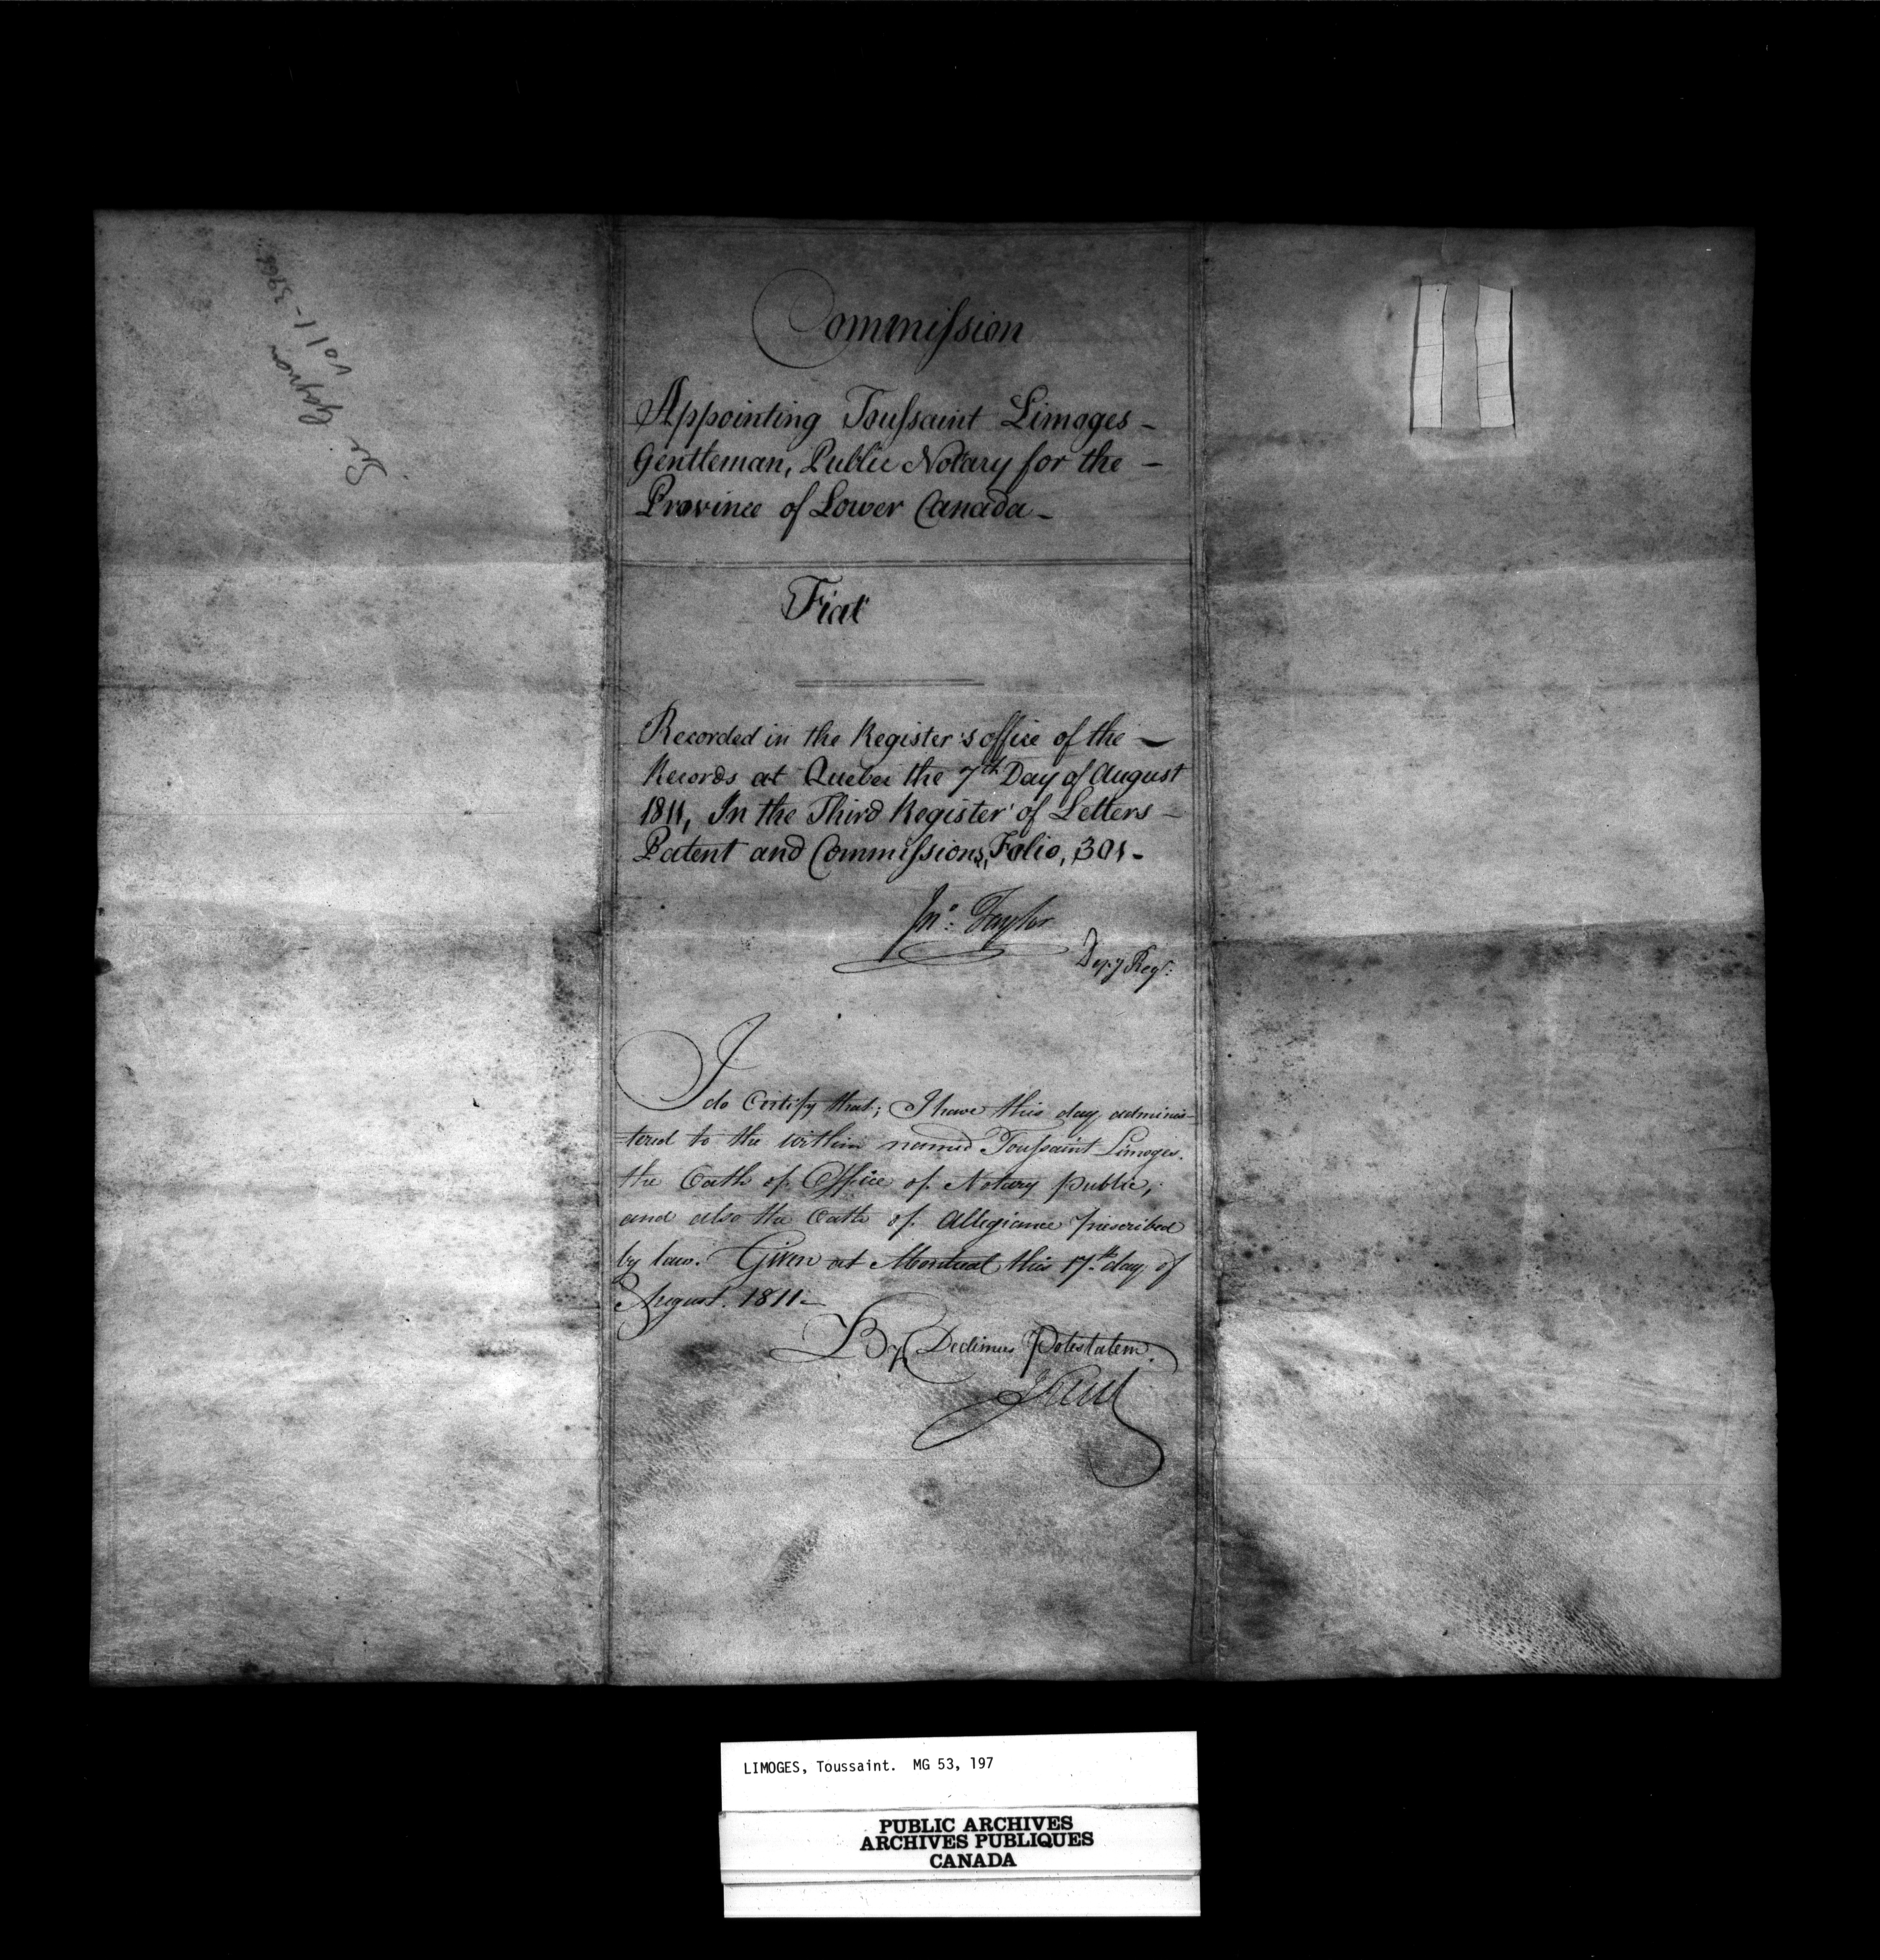 See Gagnon
vol 1 -
Commission
Appointing Toussaint Limoges -
Gentleman, Public Notary for the -
Province of Lower Canada -
Fiat
Recorded in the Register's office of the -
Records at Quebec the 7th Day of August
1811, In the Third Register of Letters -
Patent and Commissions, Folio, 301 -
Jno. Taylor
Depy Regr.
I do Certify that; I have this day adminis-
tered to the within named Toussaint Limoges.
the Oath of Office of Notary public,
and also the Oath of Allegiance prescribed
by law. Given at Montreal this 17th day of
August. 1811 -
By Dedimus Potestatem.
LIMOGES, Toussaint. MG 53, 197
PUBLIC ARCHIVES
ARCHIVES PUBLIQUES
CANADA